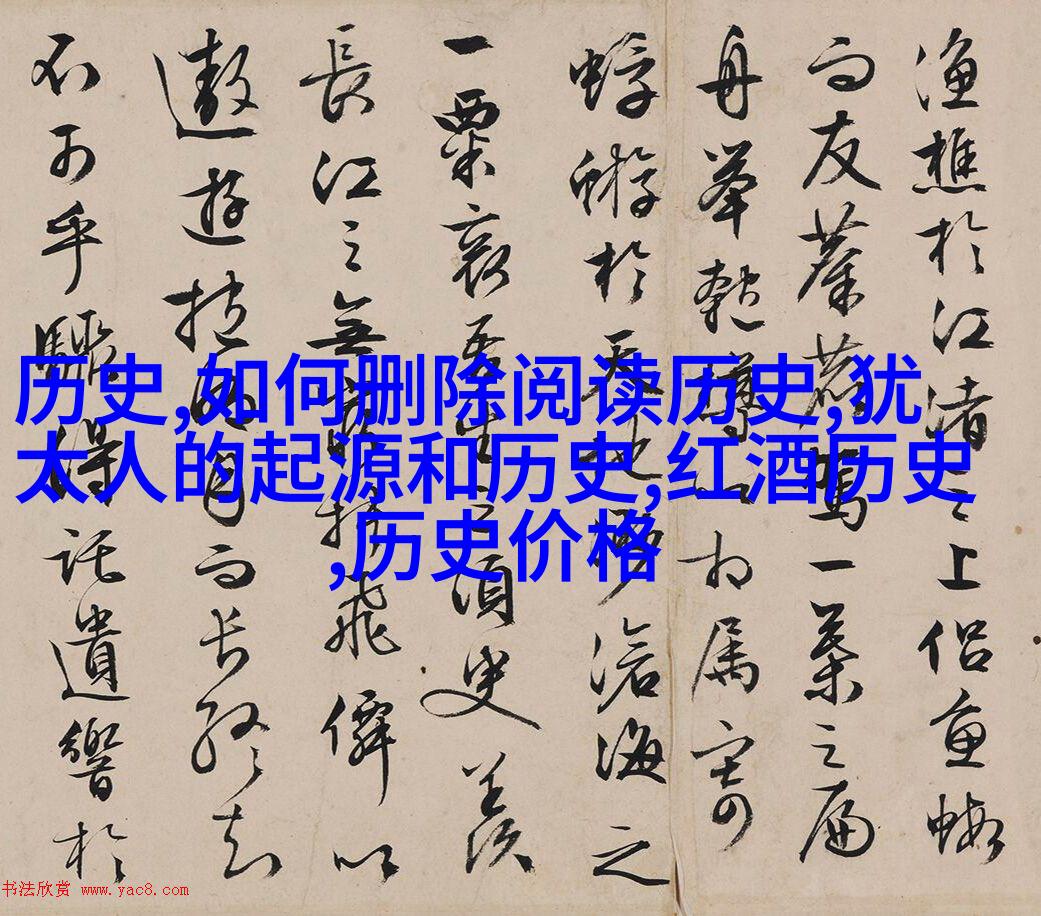 漁樵於江渚之上侣魚蝦
而友麋鹿駕一葉之扁
舟舉匏樽以相属寄
蜉蝣於天地渺滄海之
一粟哀吾生之須臾羡
長江之無窮挾飛僊以
遨遊抱明月而長終知
不可乎驟得託遺響於
历史,如何删除阅读历史,犹
太人的起源和历史,红酒历史
,历史价格
书法欣赏 www.yac8.com